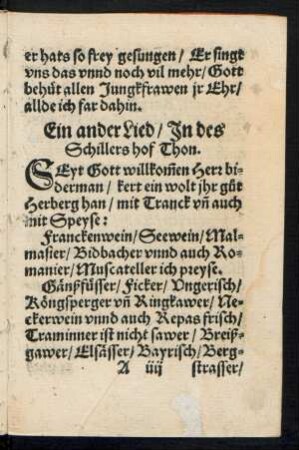 er hats so frey gesungen / Er singt
vns das vnnd noch vil mehr / Gott
behüt allen Jungkfrawen jr Ehr /
allde ich far dahin.
Ein ander Lied / In des
Schillers hof Thon.
SEyt Gott willkom̄en Herr bi-
derman / kert ein wolt jhr gůt
Herberg han / mit Tranck vn̄ auch
mit Speyse:
Franckenwein / Seewein / Mal-
masier / Bidbacher vnnd auch Ro-
manier / Muscateller ich preyse.
Gänßfüsser / Ficker / Vngerisch /
Köngsperger vn̄ Ringkawer / Ne-
ckerwein vnnd auch Repas frisch /
Traminner ist nicht sawer / Breiß-
gawer / Elsässer / Bayrisch / Berg-
A iiij strasser /